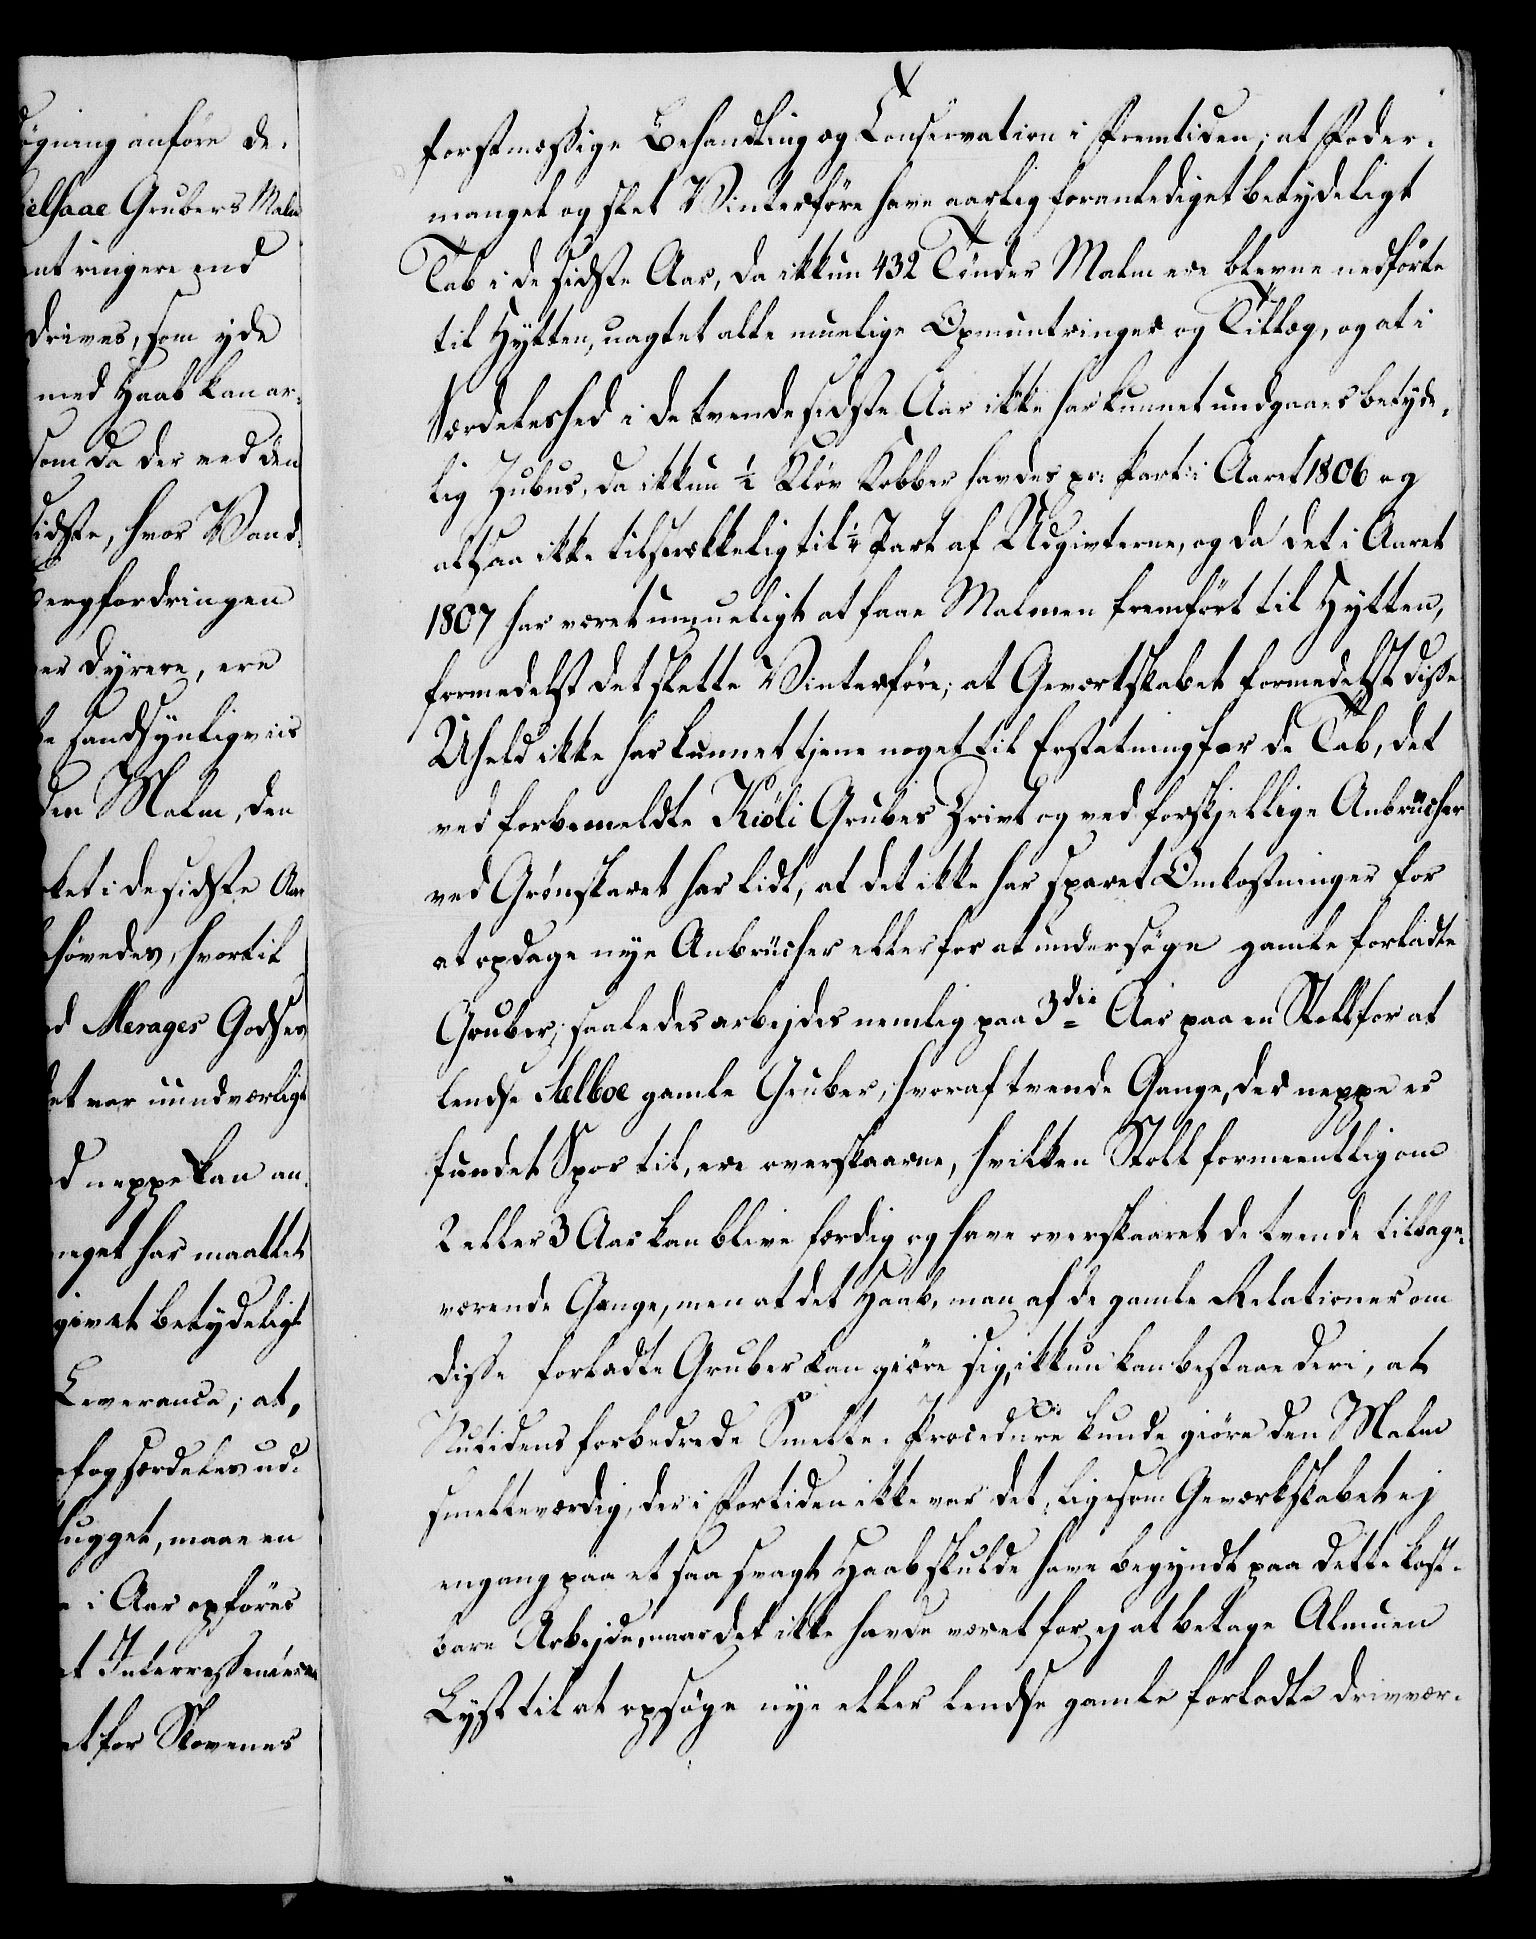 øgning anføre de-
ielsaae Grubers Malm
nt ringere end
drives, som yde
med Haab kan ar-
som da der ved den
sidste, hvor Vand-
Bergfordringen
er dyrere, ere
e sandsynligviis
den Malm, den
ket i de sidste Aar
høvedes, hvortil
d Meragers Godses
et var uundværligt
d neppe kan an-
meget har maattet
givet betydeligt
Leverance; at,
f og særdeles ud-
hugget, maae en
e i Aar opføres
et Interressenterne
et for Skovenes
forstmæssige Behandling og Conservation i Fremtiden; at Foder-
mangel og slet Vinterføre have aarlig foranlediget betydeligt
Tab i de sidste Aar, da ikkun 432 Tønder Malm ere blevne nedførte
til Hytten, uagtet alle muelige Opmuntringer og Tillæg, og at i
Særdeleshed i de tvende sidste Aar ikke har kunnet undgaaes betyde-
lig Zubus, da ikkun ½ Kløv Kobber havdes pr: Part: i Aaret 1806 og
altsaa ikke tilstrækkelig til Part af Udgivterne, og da det i Aaret
1807 har været umueligt at faae Malmen fremført til Hytten,
formedelst det slette Vinterføre; at Geværkskabet formedelst disse
Uheld ikke har kunnet tjene noget til Erstatning for de Tab, det
ved forbemeldte Kiøli Grubes Drivt og ved forskjellige Anbrücher
ved Grønskaret har lidt, at det ikke har sparet Omkostninger for
at opdage nye Anbrücher eller for at undersøge gamle forladte
Gruber; saaledes arbejdes nemlig paa 3die Aar paa en Stoll for at
lendse Selboe gamle Gruber, hvoraf tvende Gange, der neppe er
fundet Spor til, ere overskaarne, hvilken Stoll formeentlig om
2 eller 3 Aar kan blive færdig og have overskaaret de tvende tilbage-
værende Gange, men at det Haab, man af de gamle Relationer om
disse forladte Gruber kan giøre sig, ikkun kan bestaae deri, at
Nutidens forbedrede Smelte-Procedure kunde giøre den Malm
smelteværdig, der i Fortiden ikke var det, ligesom Geværkskabet ej
engang paa et saa svagt Haab skulde have begyndt paa dette kost-
bare Arbejde, naar det ikke havde været for ej at betage Almuen
Lyst til at opsøge nye eller lendse gamle forladte drivvær-